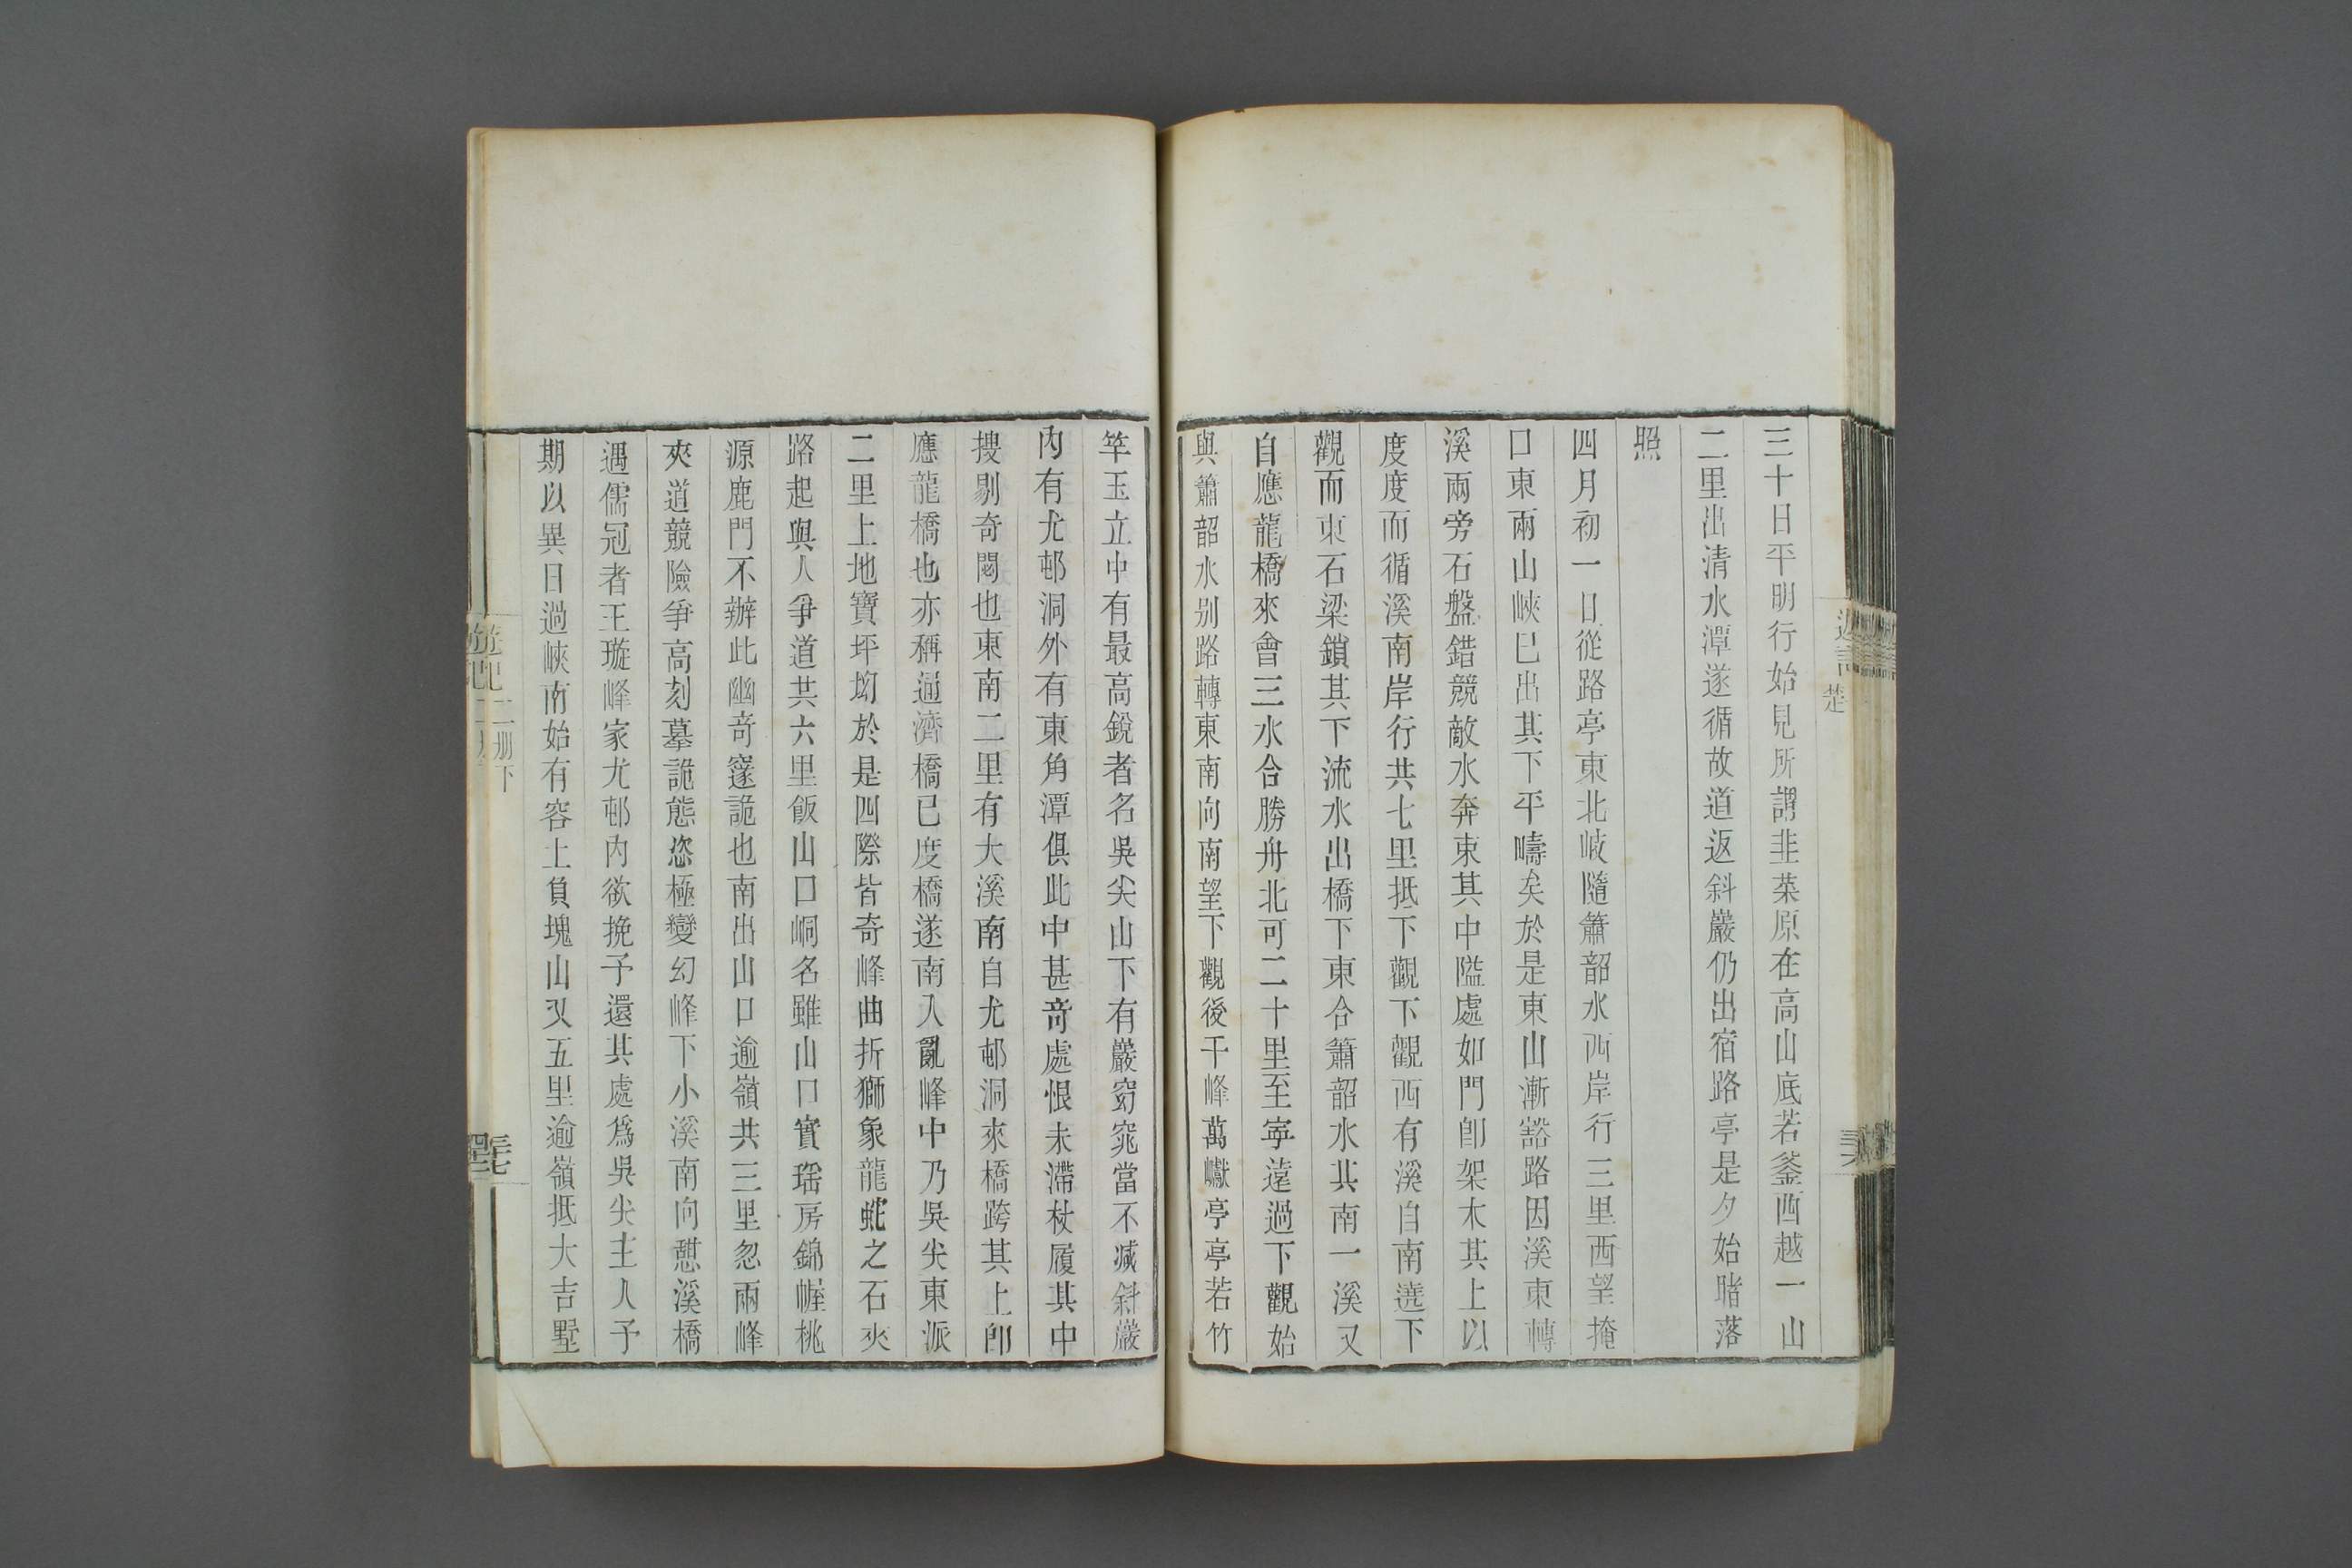 三十日平明行始見所謂韭菜原在高山底若釜西越一山
二里出清水潭遂循故道返斜巖仍出宿路亭是夕始睹落
照
四月初一日從路亭東北岐隨簫韶水西岸行三里西望掩
口東兩山峽已出其下平疇矣於是東山漸豁路因溪東轉
溪兩旁石盤錯競敵水奔束其中隘處如門卽架木其上以
度度而循溪南岸行共七里抵下觀下觀西有溪自南遶下
觀而東石梁鎖其下流水出橋下東合簫韶水其南一溪又
自應龍橋來會三水合勝舟北可二十里至寧遠過下觀始
與簫韶水別路轉東南向南望下觀後千峰萬巘亭亭若竹
竿玉立中有最高銳者名吳尖山下有巖窈窕當不减斜巖
內有尤邨洞外有東角潭俱此中甚奇處恨未滯杖履其中
搜剔奇閟也東南二里有大溪南自尤邨洞來橋跨其上卽
應龍橋也亦稱通濟橋已度橋遂南入亂峰中乃吳尖東派
二里上地寶坪坳於是四際皆奇峰曲折獅象龍蛇之石夾
路起與人爭道共六里飯山口峒名雖山口實瑤房錦幄桃
源鹿門不辦此幽奇窱詭也南出山口逾嶺共三里忽兩峰
夾道競險爭高刻摹詭態恣極變幻峰下小溪南向憇溪橋
遇儒冠者王璇峰家尤邨內欲挽予還其處爲吳尖主人予
期以異日過峽南始有容土負塊山又五里逾嶺抵大吉墅
遊記 二册下 三七